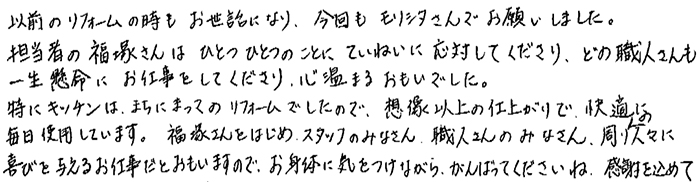 以前のリフォームの時もお世話になり、今回もモリシタさんでお願いしました。
担当者の福塚さんはひとつひとつのことにていねいに応対してくださり、どの職人さんも
一生懸命にお仕事をしてくださり、心温まるおもいでした。
特にキッチンは、まちにまってのリフォームでしたので、想像以上の仕上がりで、快適に
毎日使用しています。福塚さんをはじめ、スタッフのみなさん、職人さんのみなさん、周りの人々に
喜びを与えるお仕事だとおもいますので、お身体に気をつけながら、がんばってくださいね。感謝を込めて